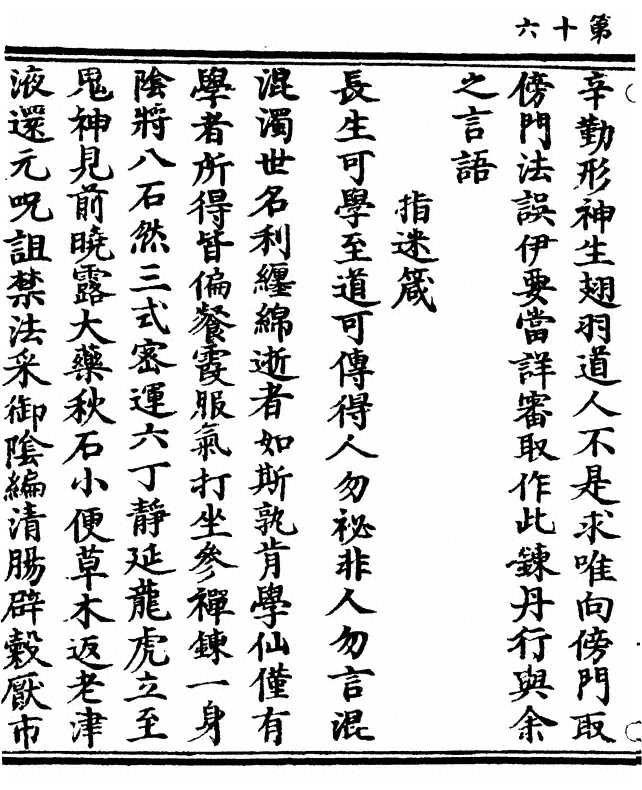 第十六
辛勤形神生翅羽道人不是求唯向傍門取
傍門法誤伊要當詳審取作此鍊丹行與余
之言語
指迷箴
長生可學至道可傳得人勿祕非人勿言混
混濁世名利纏綿逝者如斯孰肯學仙僅有
學者所得皆偏餐霞服氣打坐參禪鍊一身
陰將八石然三式密運六丁靜延龍虎立至
鬼神見前曉露大藥秋石小便草木返老津
液還元呪詛禁法采御陰編清腸辟穀厭市